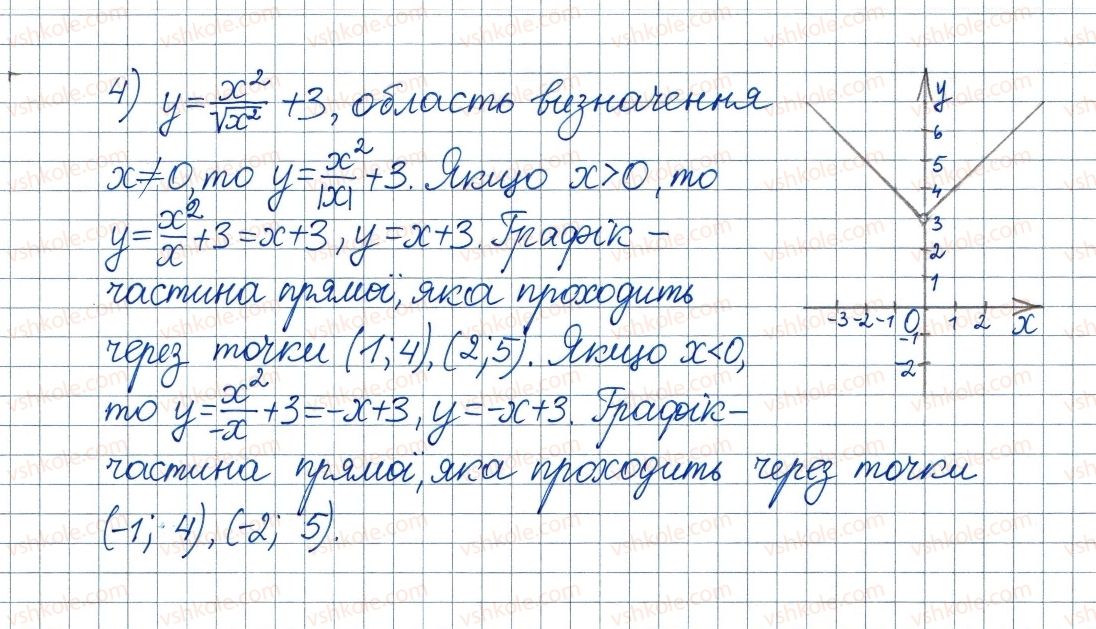 4) y = x²/√x² + 3, область визначення
x ≠ 0, то y = x²/|x| + 3. Якщо x > 0, то
y = x²/x + 3 = x + 3, y = x + 3. Графік –
частина прямої, яка проходить
через точки (1; 4), (2; 5). Якщо x < 0,
то y = x²/-x + 3 = -x + 3, y = -x + 3. Графік –
частина прямої, яка проходить через точки
(-1; 4), (-2; 5).
y
6
5
4
3
2
1
-3 -2 -1 0 1 2 x
-1
-2
vshkole.com